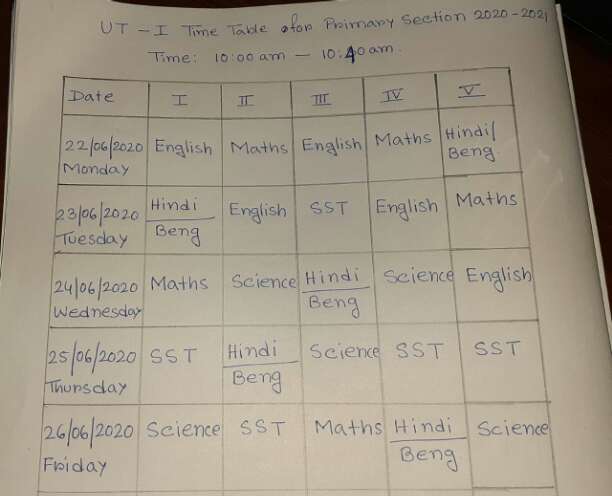 UT - I Time Table for Primary Section 2020-2021
Time: 10:00 am - 10:40 am.
Date I II III IV V
22/06/2020 Monday English Maths English Maths Hindi/Beng.
23/06/2020 Tuesday Hindi/Beng English SST English Maths
24/06/2020 Wednesday Maths Science Hindi/Beng Science English
25/06/2020 Thursday SST Hindi/Beng Science SST SST
26/06/2020 Friday Science SST Maths Hindi/Beng Science